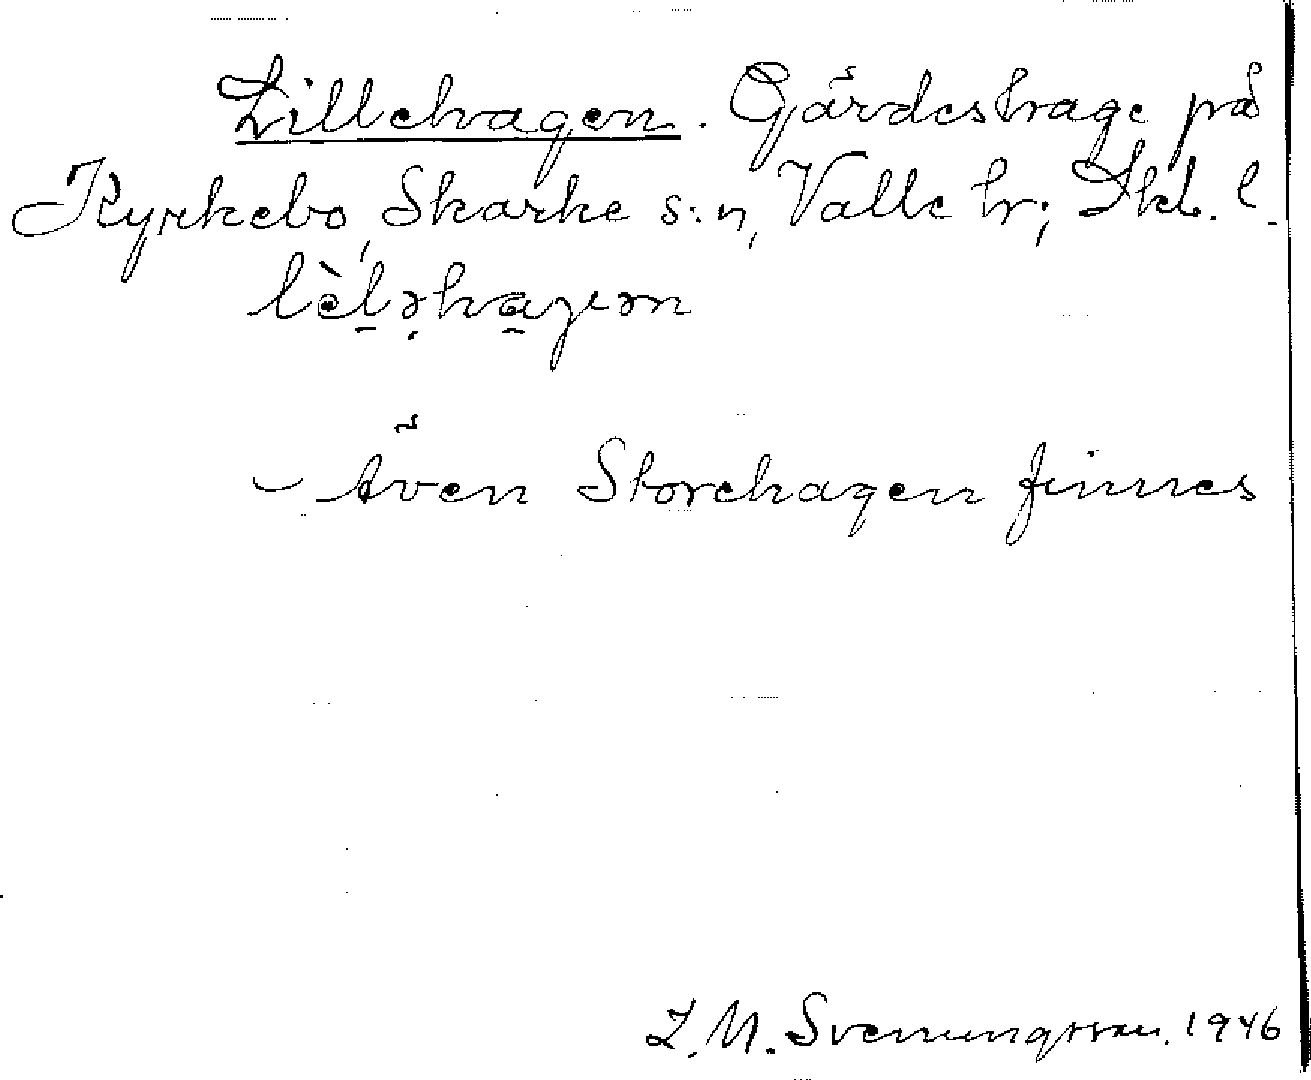 Lillehagen. Gärdeshage på
Kyrkebo, Skarke s:n, Valle hr; Skb. l.
lèl̠ə̣ha̠gən
– Även Storehagen finnes
L. M. Svenungsson. 1946